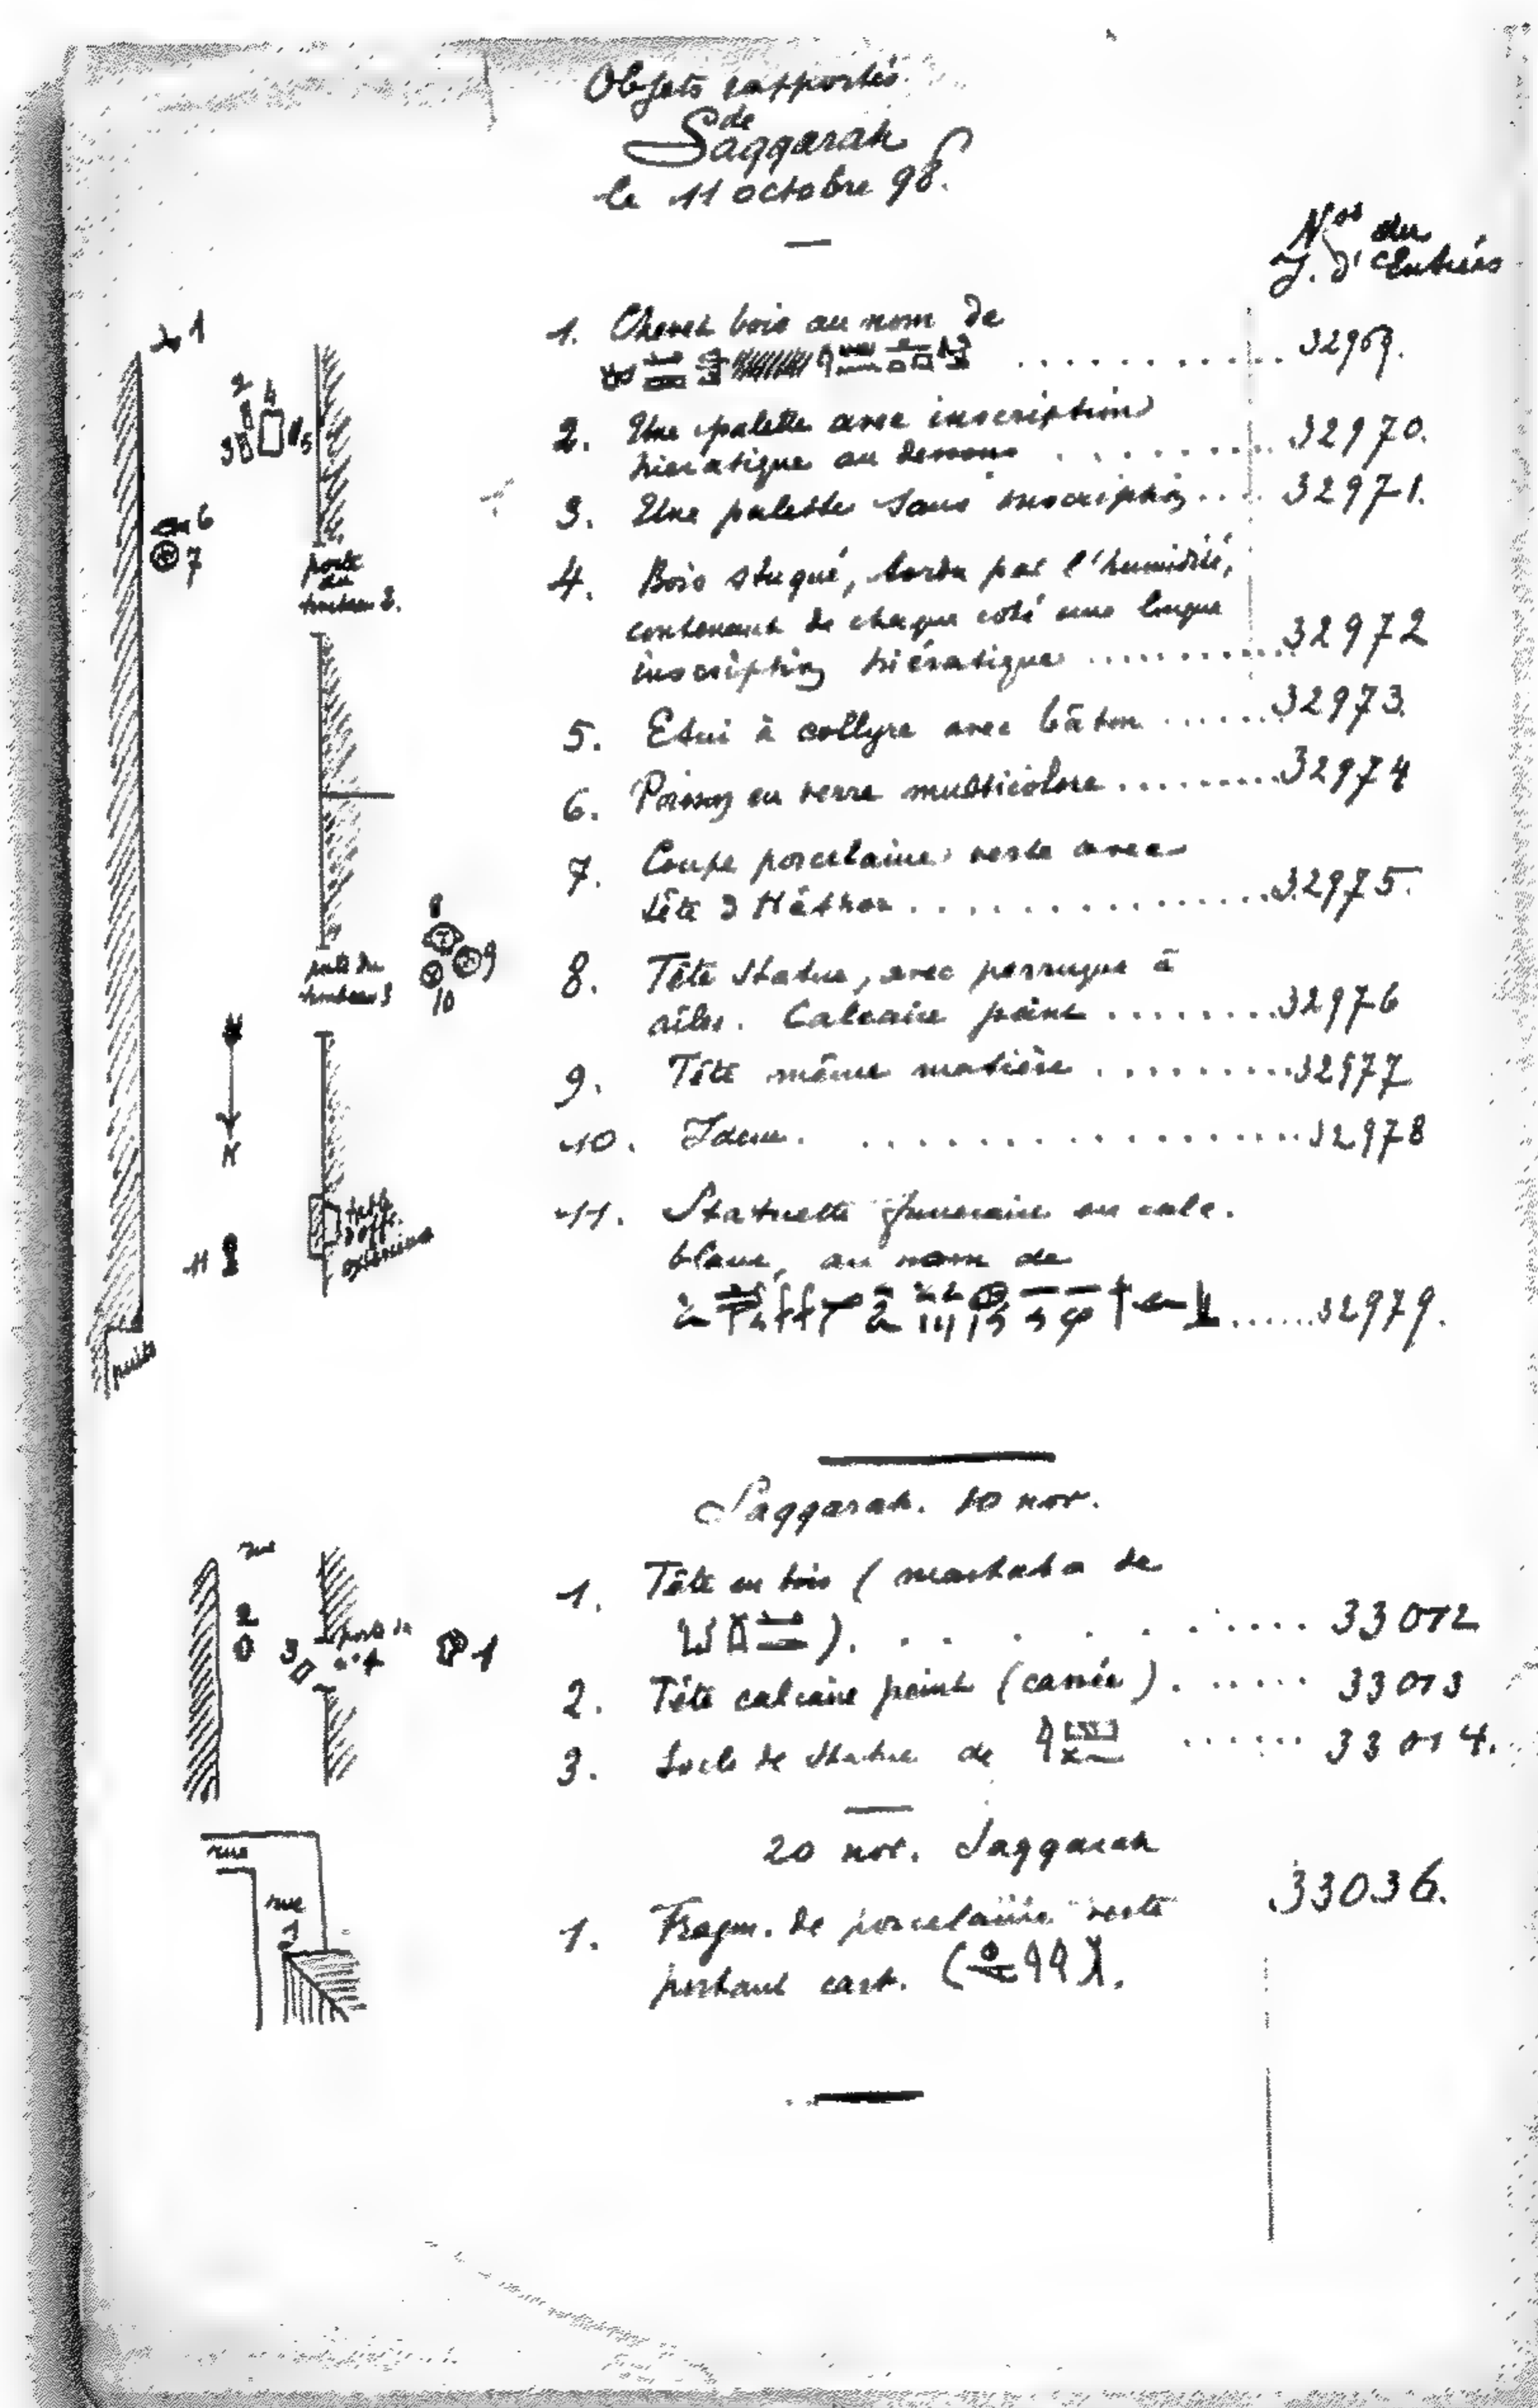 Objets rapportés
de
Saqqarah
le 11 octobre 98.
Nos du
J. d'Entrées
1. Chevet bois au nom de
32969.
2. Une palette avec inscription
hiératique au dessous 32970.
3. Une palette sans inscription 32971.
4. Bois stuqué, tordu par l'humidité,
contenant de chaque coté une longue
inscription hiératique 32972
5. Etui à collyre avec bâton 32973.
6. Poisson en verre multicolore 32974
7. Coupe porcelaine verte avec
tête d'Hathor 32975.
8. Tête statue, avec perruque à
ailes. Calcaire peint 32976
9. Tête même matière 32977
10. Idem. 32978
11. Statuette funeraire en calc.
blanc, au nom de
32979.
1
2 4
3 5
6
7
porte
du
tombeau 2.
8
9
10
porte du
tombeau 3
N
11
table
d'off.
extérieure
puits
Saqqarah. 10 nov.
1. Tête en bois (mastaba de
). 33012
2. Tête calcaire peint (cassée) 33013
3. Socle de statue de 33014.
rue
2
3
porte du
n° 4
1
20 nov. Saqqarah
1. Fragm. de porcelaine verte 33036.
portant cart.
rue
rue
1